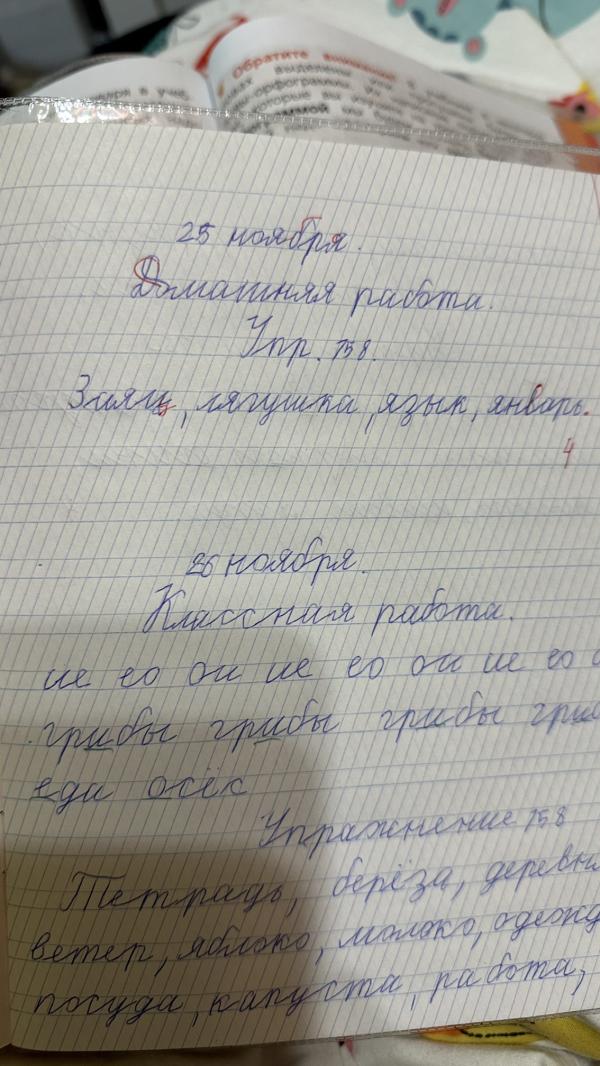 Обратите внимание
выделены
орфограммы
которые вы
25 ноября.
Домашняя работа.
Упр. 158.
Заяц, лягушка, язык, январь.
4
26 ноября.
Классная работа.
ие ео ои ие ео ои ие ео
грибы грибы грибы гри
еди осёк
Упражнение 158
Тетрадь, берёза, деревн
ветер, яблоко, молоко, одежд
посуда, капуста, работа,